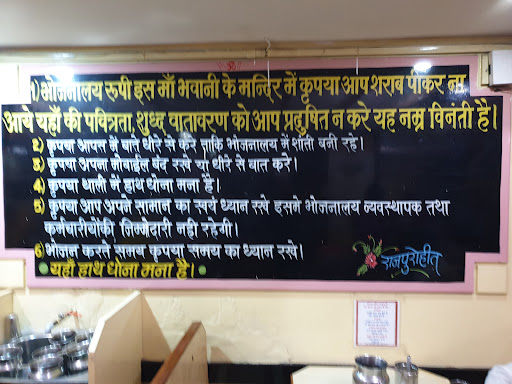 १) भोजनालय रूपी इस माँ भवानी के मन्दिर में कृपया आप शराब पीकर ना
आये यहाँ की पवित्रता शुध्द वातावरण को आप प्रदुषित न करे यह नम्र विनंती है।
२) कृपया आपस में बाते धीरे से करे ताकि भोजनालय में शांती बनी रहे।
३) कृपया अपना मोबाईल बंद रखे या धीरे से बात करे।
४) कृपया थाली में हाथ धोना मना है।
५) कृपया आप अपने सामान का स्वयं ध्यान रखे इसमे भोजनालय व्यवस्थापक तथा
कर्मचारीयोंकी जिम्मेदारी नही रहेगी।
६) भोजन करते समय कृपया समय का ध्यान रखे।
यहाँ हाथ धोना मना है।
राजपुरोहीत